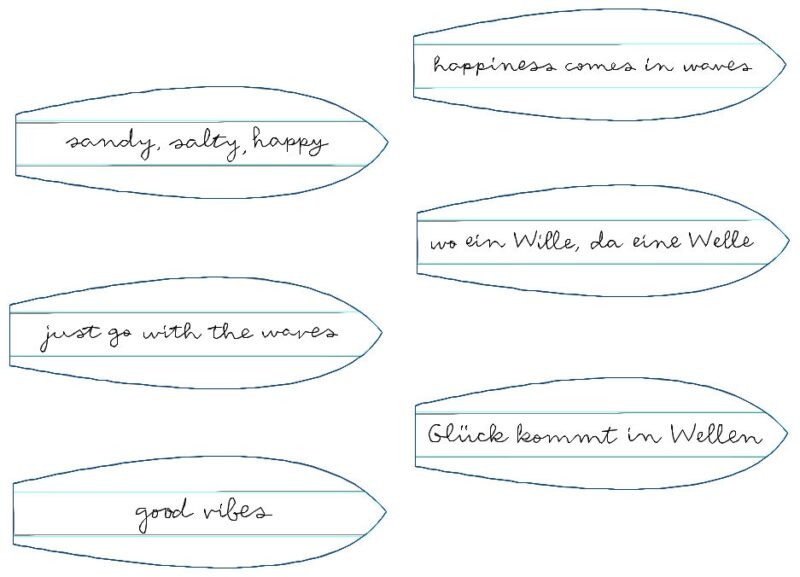 sandy, salty, happy
just go with the waves
good vibes
happiness comes in waves
wo ein Wille, da eine Welle
Glück kommt in Wellen